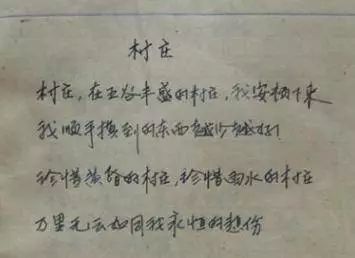 村庄
村庄,在五谷丰盛的村庄,我安顿下来
我顺手摸到的东西越少越好!
珍惜黄昏的村庄,珍惜雨水的村庄
万里无云如同我永恒的悲伤